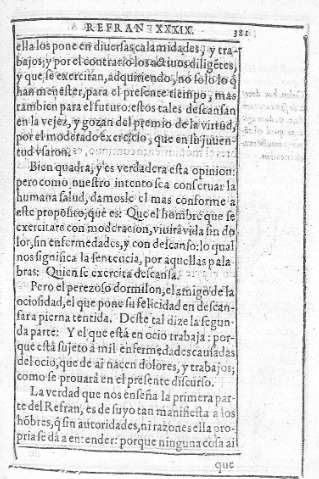 REFRAN XXXIX. 381
ella los pone en diuersas calamidades, y tra-
bajos; y por el contrario los actiuos diligẽtes,
y que se exercitan, adquiriendo, no solo lo q̃
han menester, para el presente tiempo, mas
tambien para el futuro: estos tales descansan
en la vejez, y gozan del premio de la virtud,
por el moderado exercicio, que en su juuen-
tud vsaron.
Bien quadra, y es verdadera esta opinion:
pero como nuestro intento sea conseruar la
humana salud, damosle el mas conforme a
este proposito, que es: Que el hombre que se
exercitare con moderacion, viuirà vida sin do
lor, sin enfermedades, y con descanso: lo qual
nos significa la sentencia, por aquellas pala
bras: Quien se exercita descansa.
Pero el perezoso dormilon, el amigo de la
ociosidad, el que pone su felicidad en descan-
sar a pierna tentida. Deste tal dize la segun-
da parte: Y el que està en ocio trabaja: por-
que està sujeto à mil enfermedades causadas
del ocio, que de ai nacen dolores, y trabajos;
como se prouarà en el presente discurso.
La verdad que nos enseña la primera par-
te del Refran, es de suyo tan manifiesta a los
hõbres, q̃ sin autoridades, ni razones ella pro-
pria se dà a entender: porque ninguna cosa ai
que